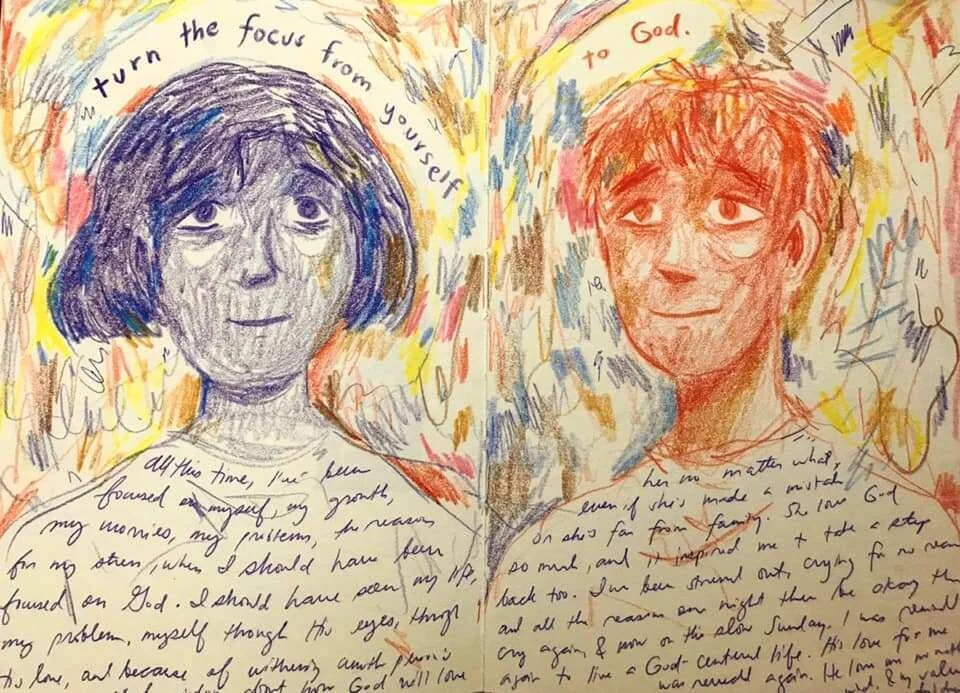 turn the focus from yourself
to God.
All this time, I've been
focused on myself, my growth,
my worries, my problems, the reason
for my stress, when I should have been
focused on God. I should have seen my life,
my problem, myself through His eyes, through
His love, and because of witnessing another person's
about how God will love
her no matter what,
even if she's made a mistake
or she's far from family. She love God
so much, and it inspired me to take a step
back too. I've been stressed out, crying for no reason
and all the reasons one night then be okay then
cry again, & now on this slow Sunday, I was reminded
again to live a God-centered life. His love for me
was remind again. He love me no matter